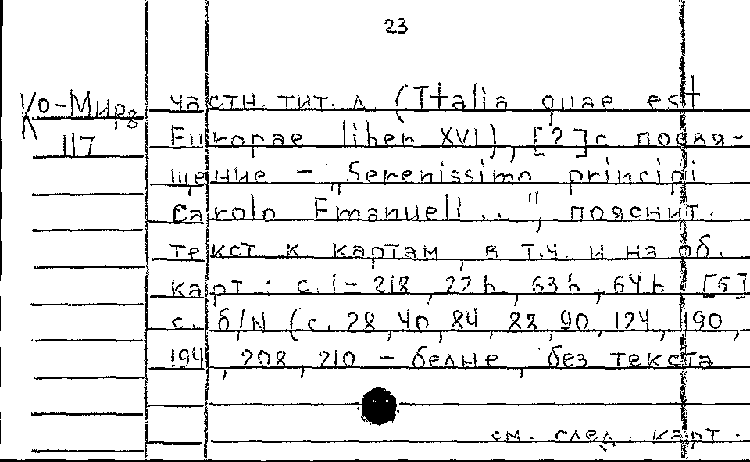 23
Ко-Мирз частн. тит. л. (Italia quae est
117 Europae liber XVI), [2] с посвя-
щение - „Serenissimo principi
Carolo Emanueli..", пояснит.
текст к картам, в т.ч. и на об.
карт: с. 1-218, 22 b, 63 b, 64 b [5]
с. б/N (с. 28, 40, 84, 88, 90, 124, 190,
194, 208, 210 - белые, без текста
см. след. карт.